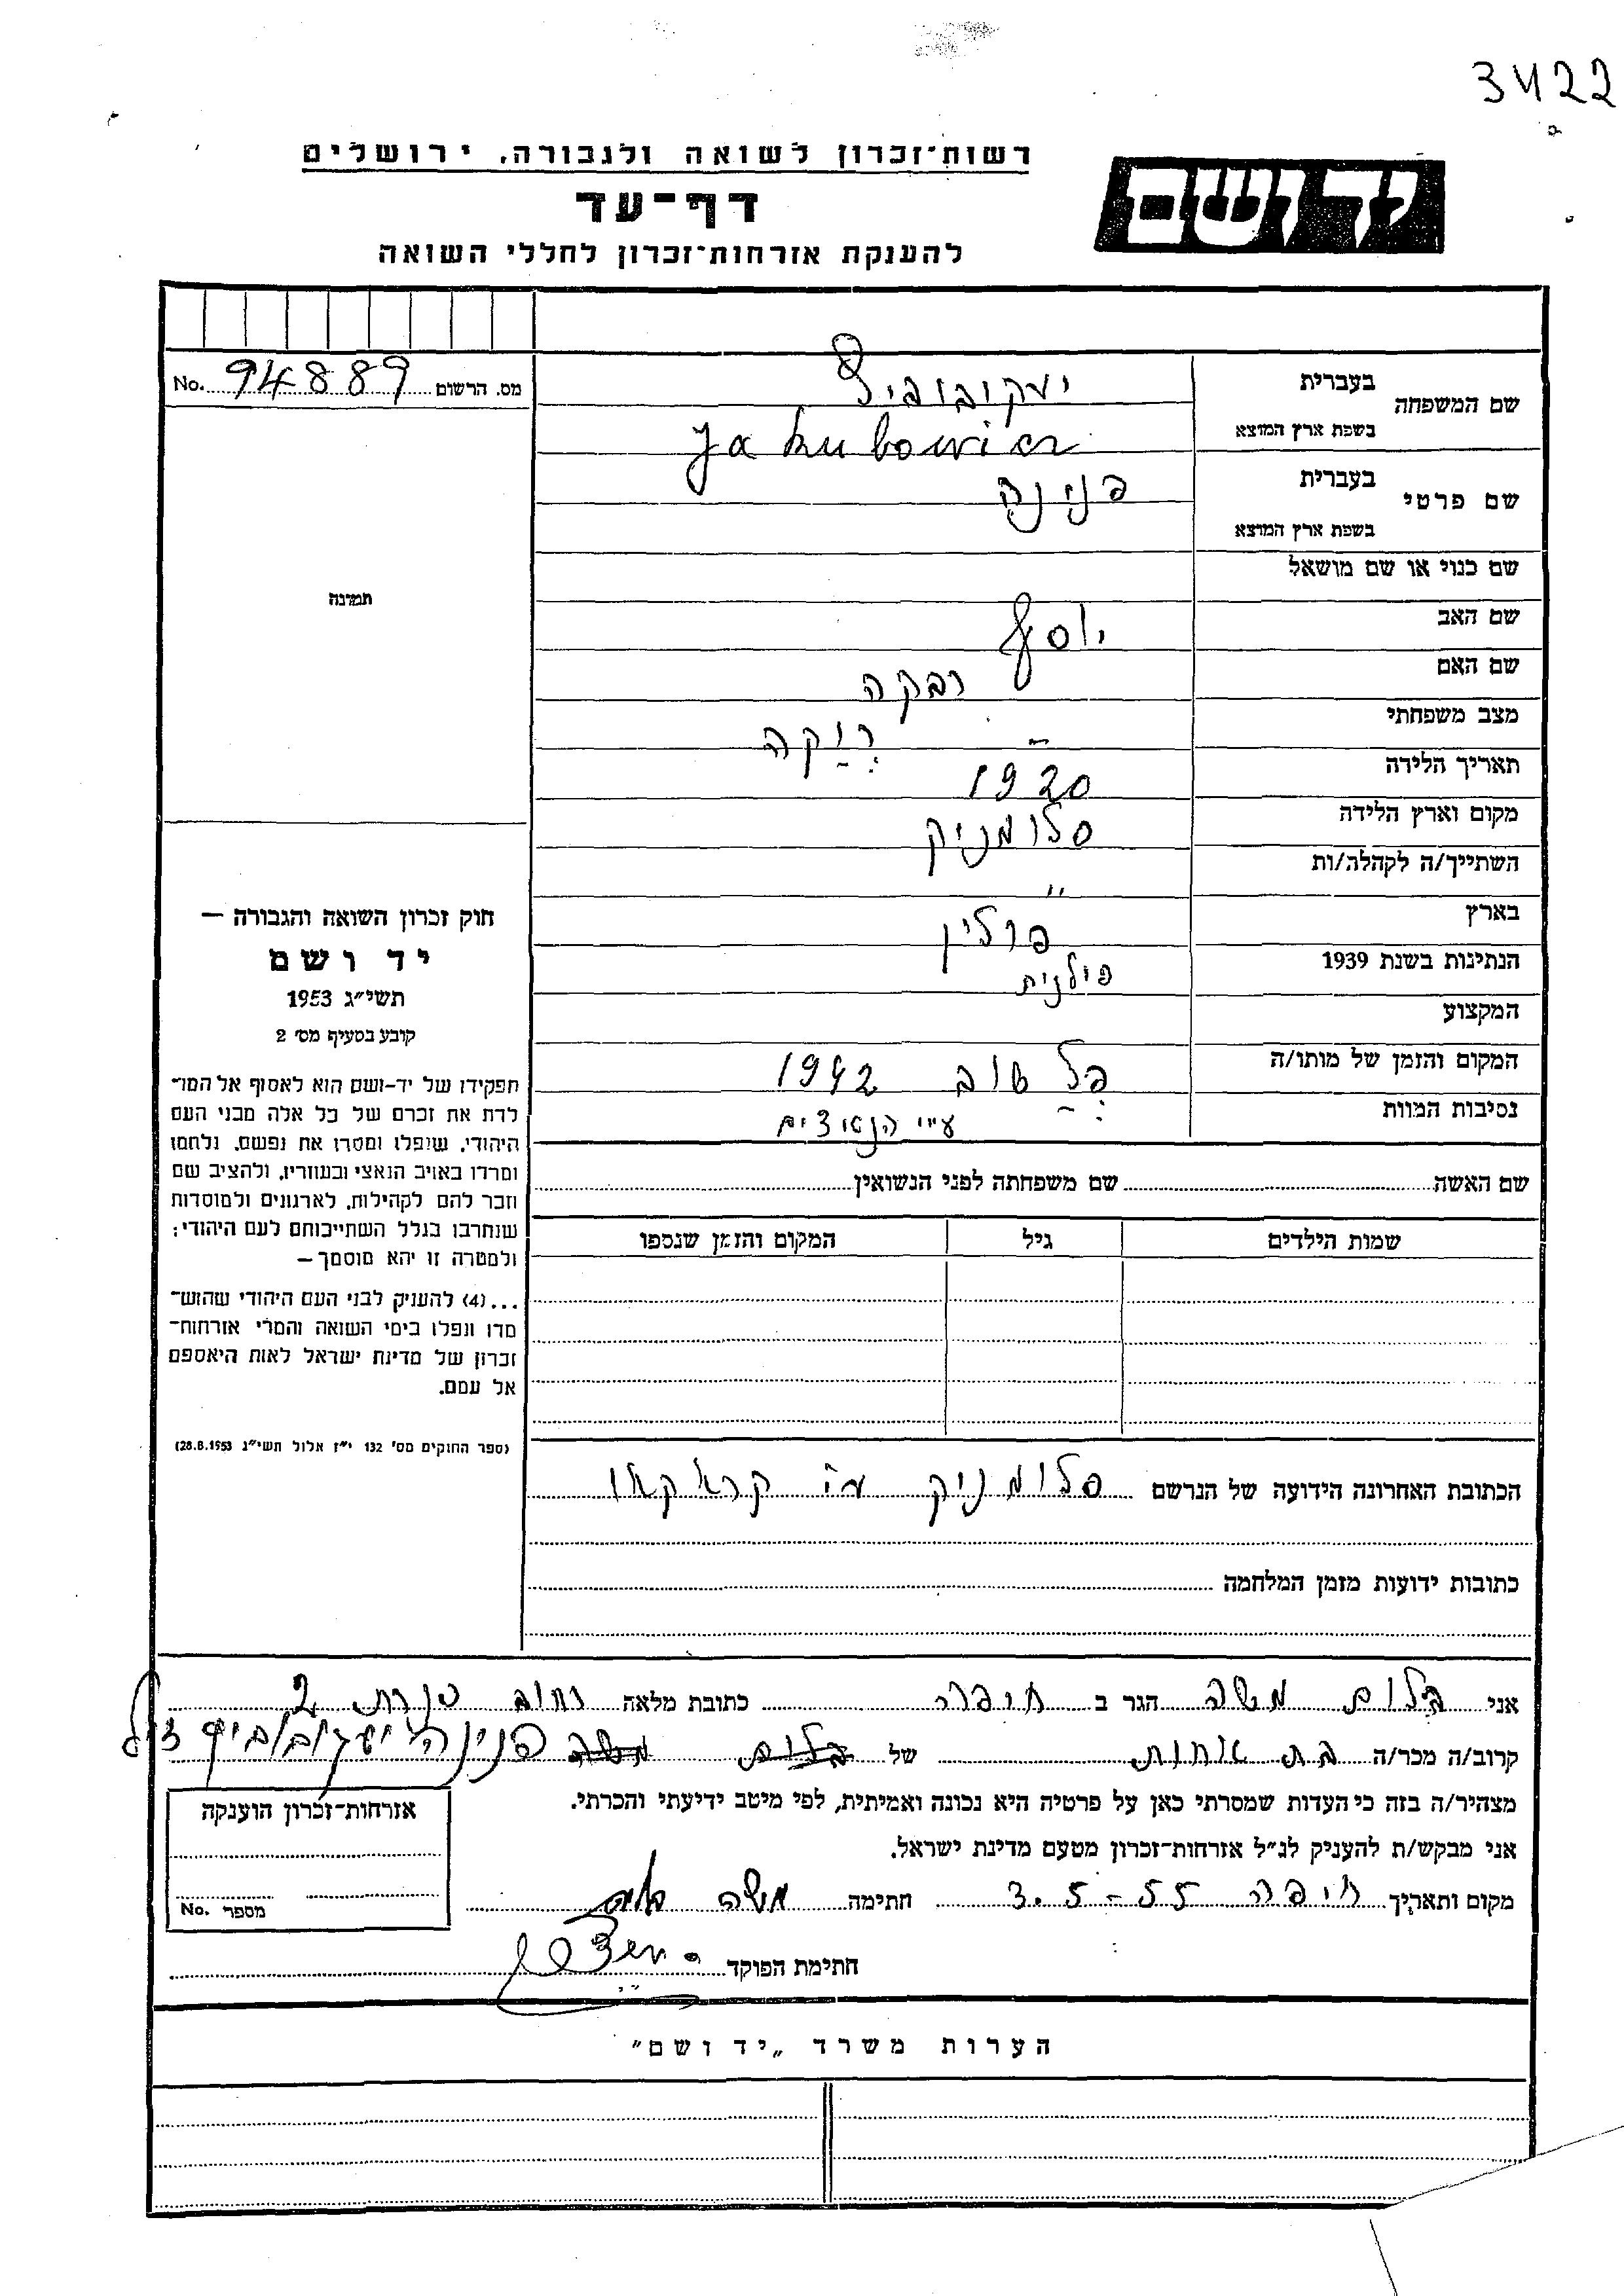 3422
רשות־זכרון לשואה ולגבורה, ירושלים
יד ושם
דף־עד
להענקת אזרחות־זכרון לחללי השואה
מס. הרשום 94889 No.
שם המשפחה
בעברית יעקובוביץ
בשפת ארץ המוצא Jakubowicz
שם פרטי
בעברית פנינה
בשפת ארץ המוצא
שם כנוי או שם מושאל
שם האב יוסף
שם האם רבקה
מצב משפחתי - רַוָקה
תאריך הלידה 1920
מקום וארץ הלידה סלומניק
השתייך/ה לקהלה/ות "
בארץ פולין
הנתינות בשנת 1939 פולנית
המקצוע
המקום והזמן של מותו/ה 1942
נסיבות המוות ע"י הנאצים
שם האשה שם משפחתה לפני הנשואין
שמות הילדים גיל המקום והזמן שנספו
הכתובת האחרונה הידועה של הנרשם סלומניק ע"י קראקאו
כתובות ידועות מזמן המלחמה
תמונה
חוק זכרון השואה והגבורה —
יד ושם
תשי״ג 1953
קובע בסעיף מס׳ 2
תפקידו של יד-ושם הוא לאסוף אל המו־
לדת את זכרם של כל אלה מבני העם
היהודי, שנפלו ומסרו את נפשם, נלחמו
ומרדו באויב הנאצי ובעוזריו, ולהציב שם
וזכר להם לקהילות, לארגונים ולמוסדות
שנחרבו בגלל השתייכותם לעם היהודי;
ולמטרה זו יהא מוסמך —
...(4) להעניק לבני העם היהודי שהוש־
מדו ונפלו בימי השואה והמרי אזרחות־
זכרון של מדינת ישראל לאות היאספם
אל עמם.
(ספר החוקים מס׳ 132 י״ז אלול תשי״ג 28.8.1953)
אני בלום משה הגר ב חיפה כתובת מלאה רחוב 2
קרוב/ה מכר/ה בת אחות של בלום משה פנינה יעקובוביץ ז"ל
מצהיר/ה בזה כי העדות שמסרתי כאן על פרטיה היא נכונה ואמיתית, לפי מיטב ידיעתי והכרתי.
אני מבקש/ת להעניק לנ״ל אזרחות־זכרון מטעם מדינת ישראל.
מקום ותאריך חיפה 3.5-55 חתימה משה בלום
חתימת הפוקד
אזרחות־זכרון הוענקה
מספר No.
הערות משרד „יד ושם"